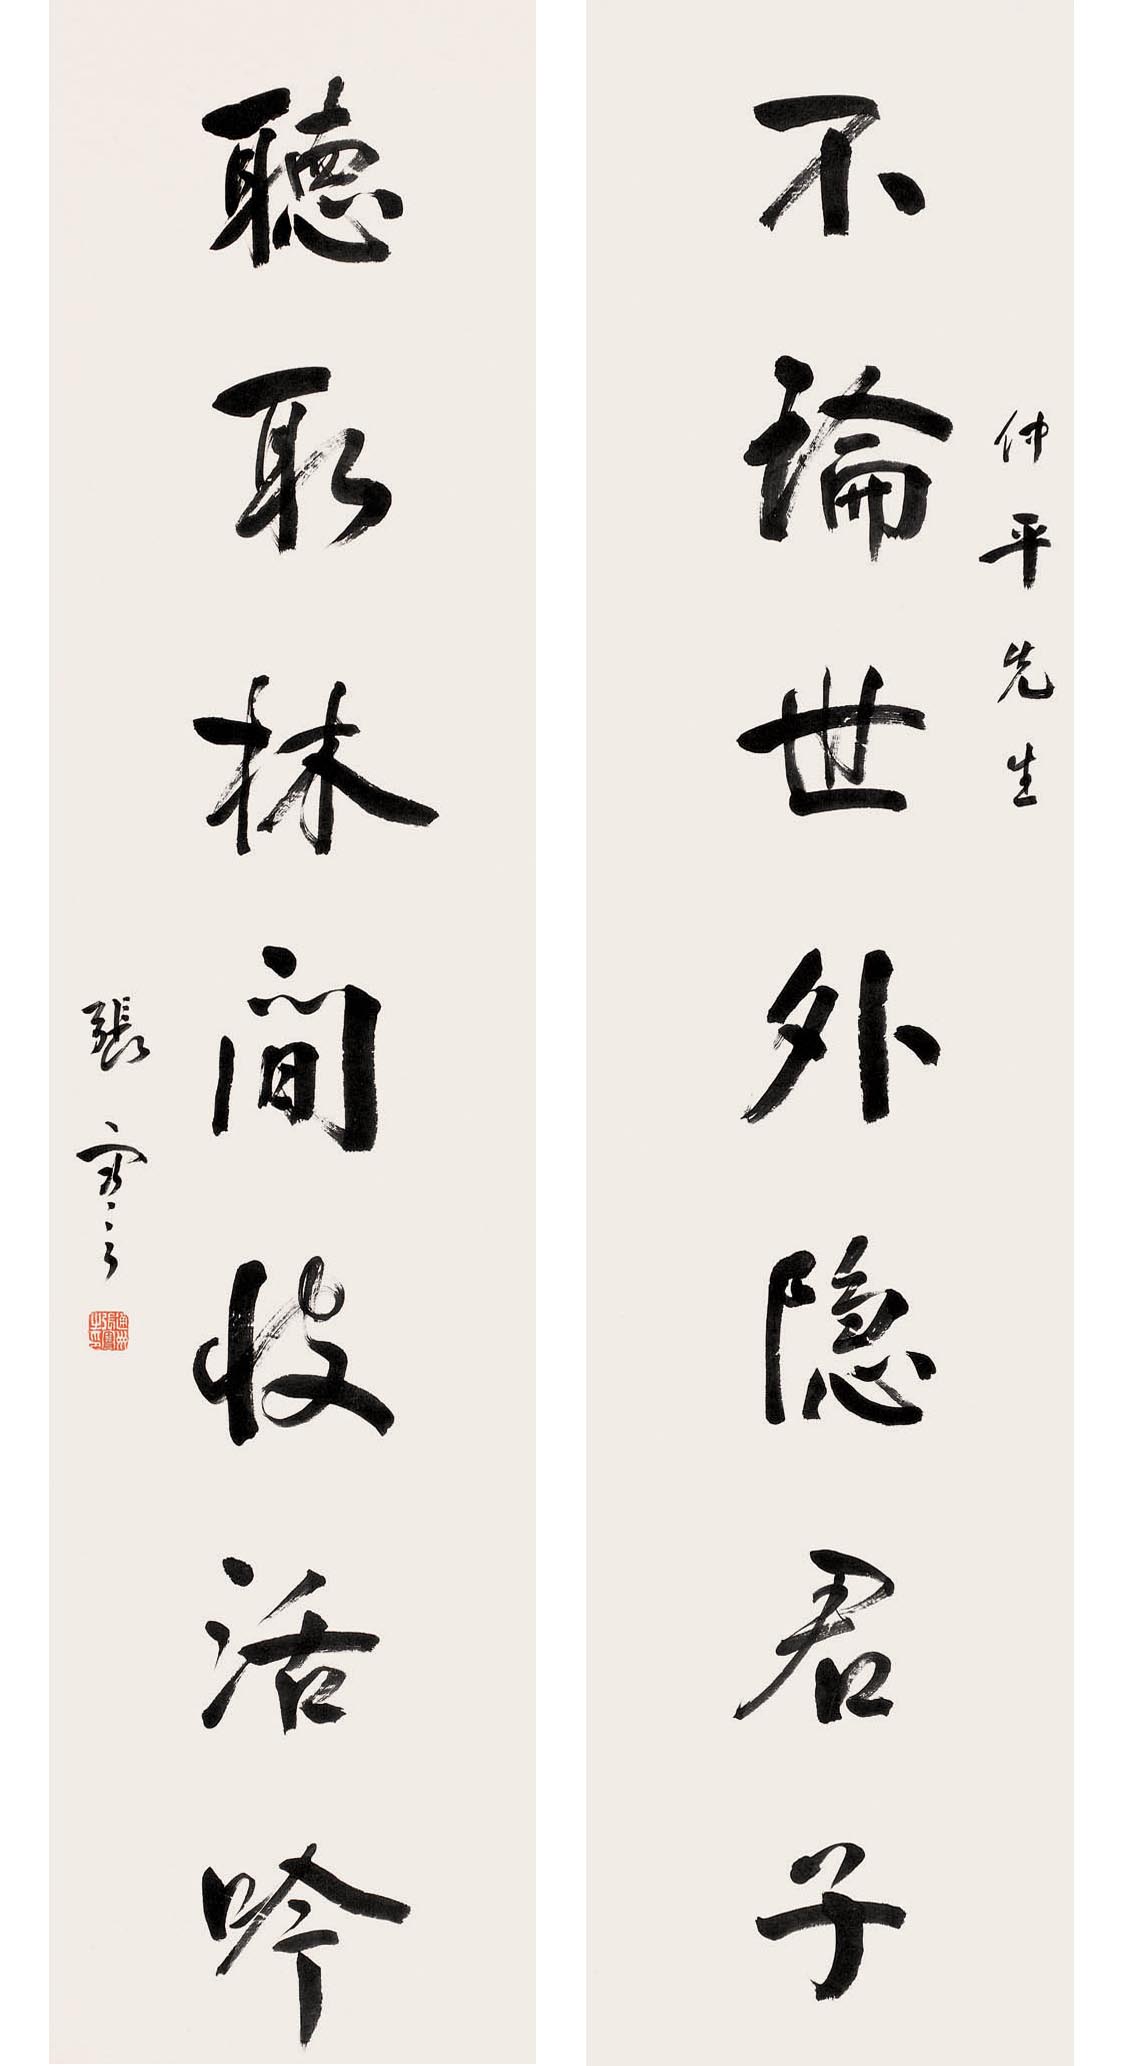 仲平先生
不論世外隐君子
聽取林間快活吟
張謇